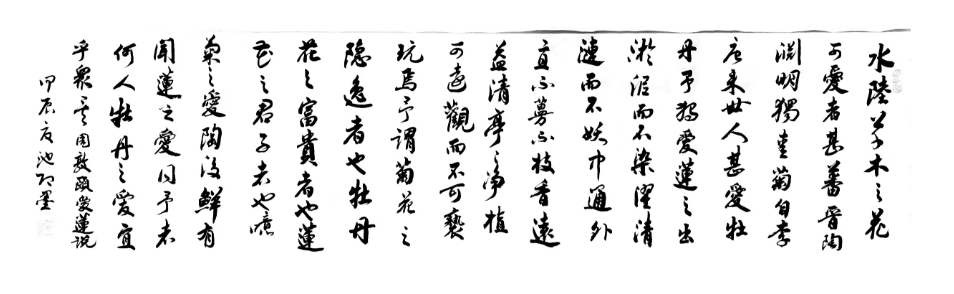 水陸草木之花
可愛者甚蕃晉陶
淵明獨愛菊自李
唐來世人甚愛牡
丹予獨愛蓮之出
淤泥而不染濯清
漣而不妖中通外
直不蔓不枝香遠
益清亭亭净植
可遠觀而不可褻
玩焉予謂菊花之
隐逸者也牡丹
花之富貴者也蓮
花之君子者也噫
菊之愛陶後鮮有
聞蓮之愛同予者
何人牡丹之愛宜
乎眾矣周敦頤愛蓮説
甲辰夏池墨